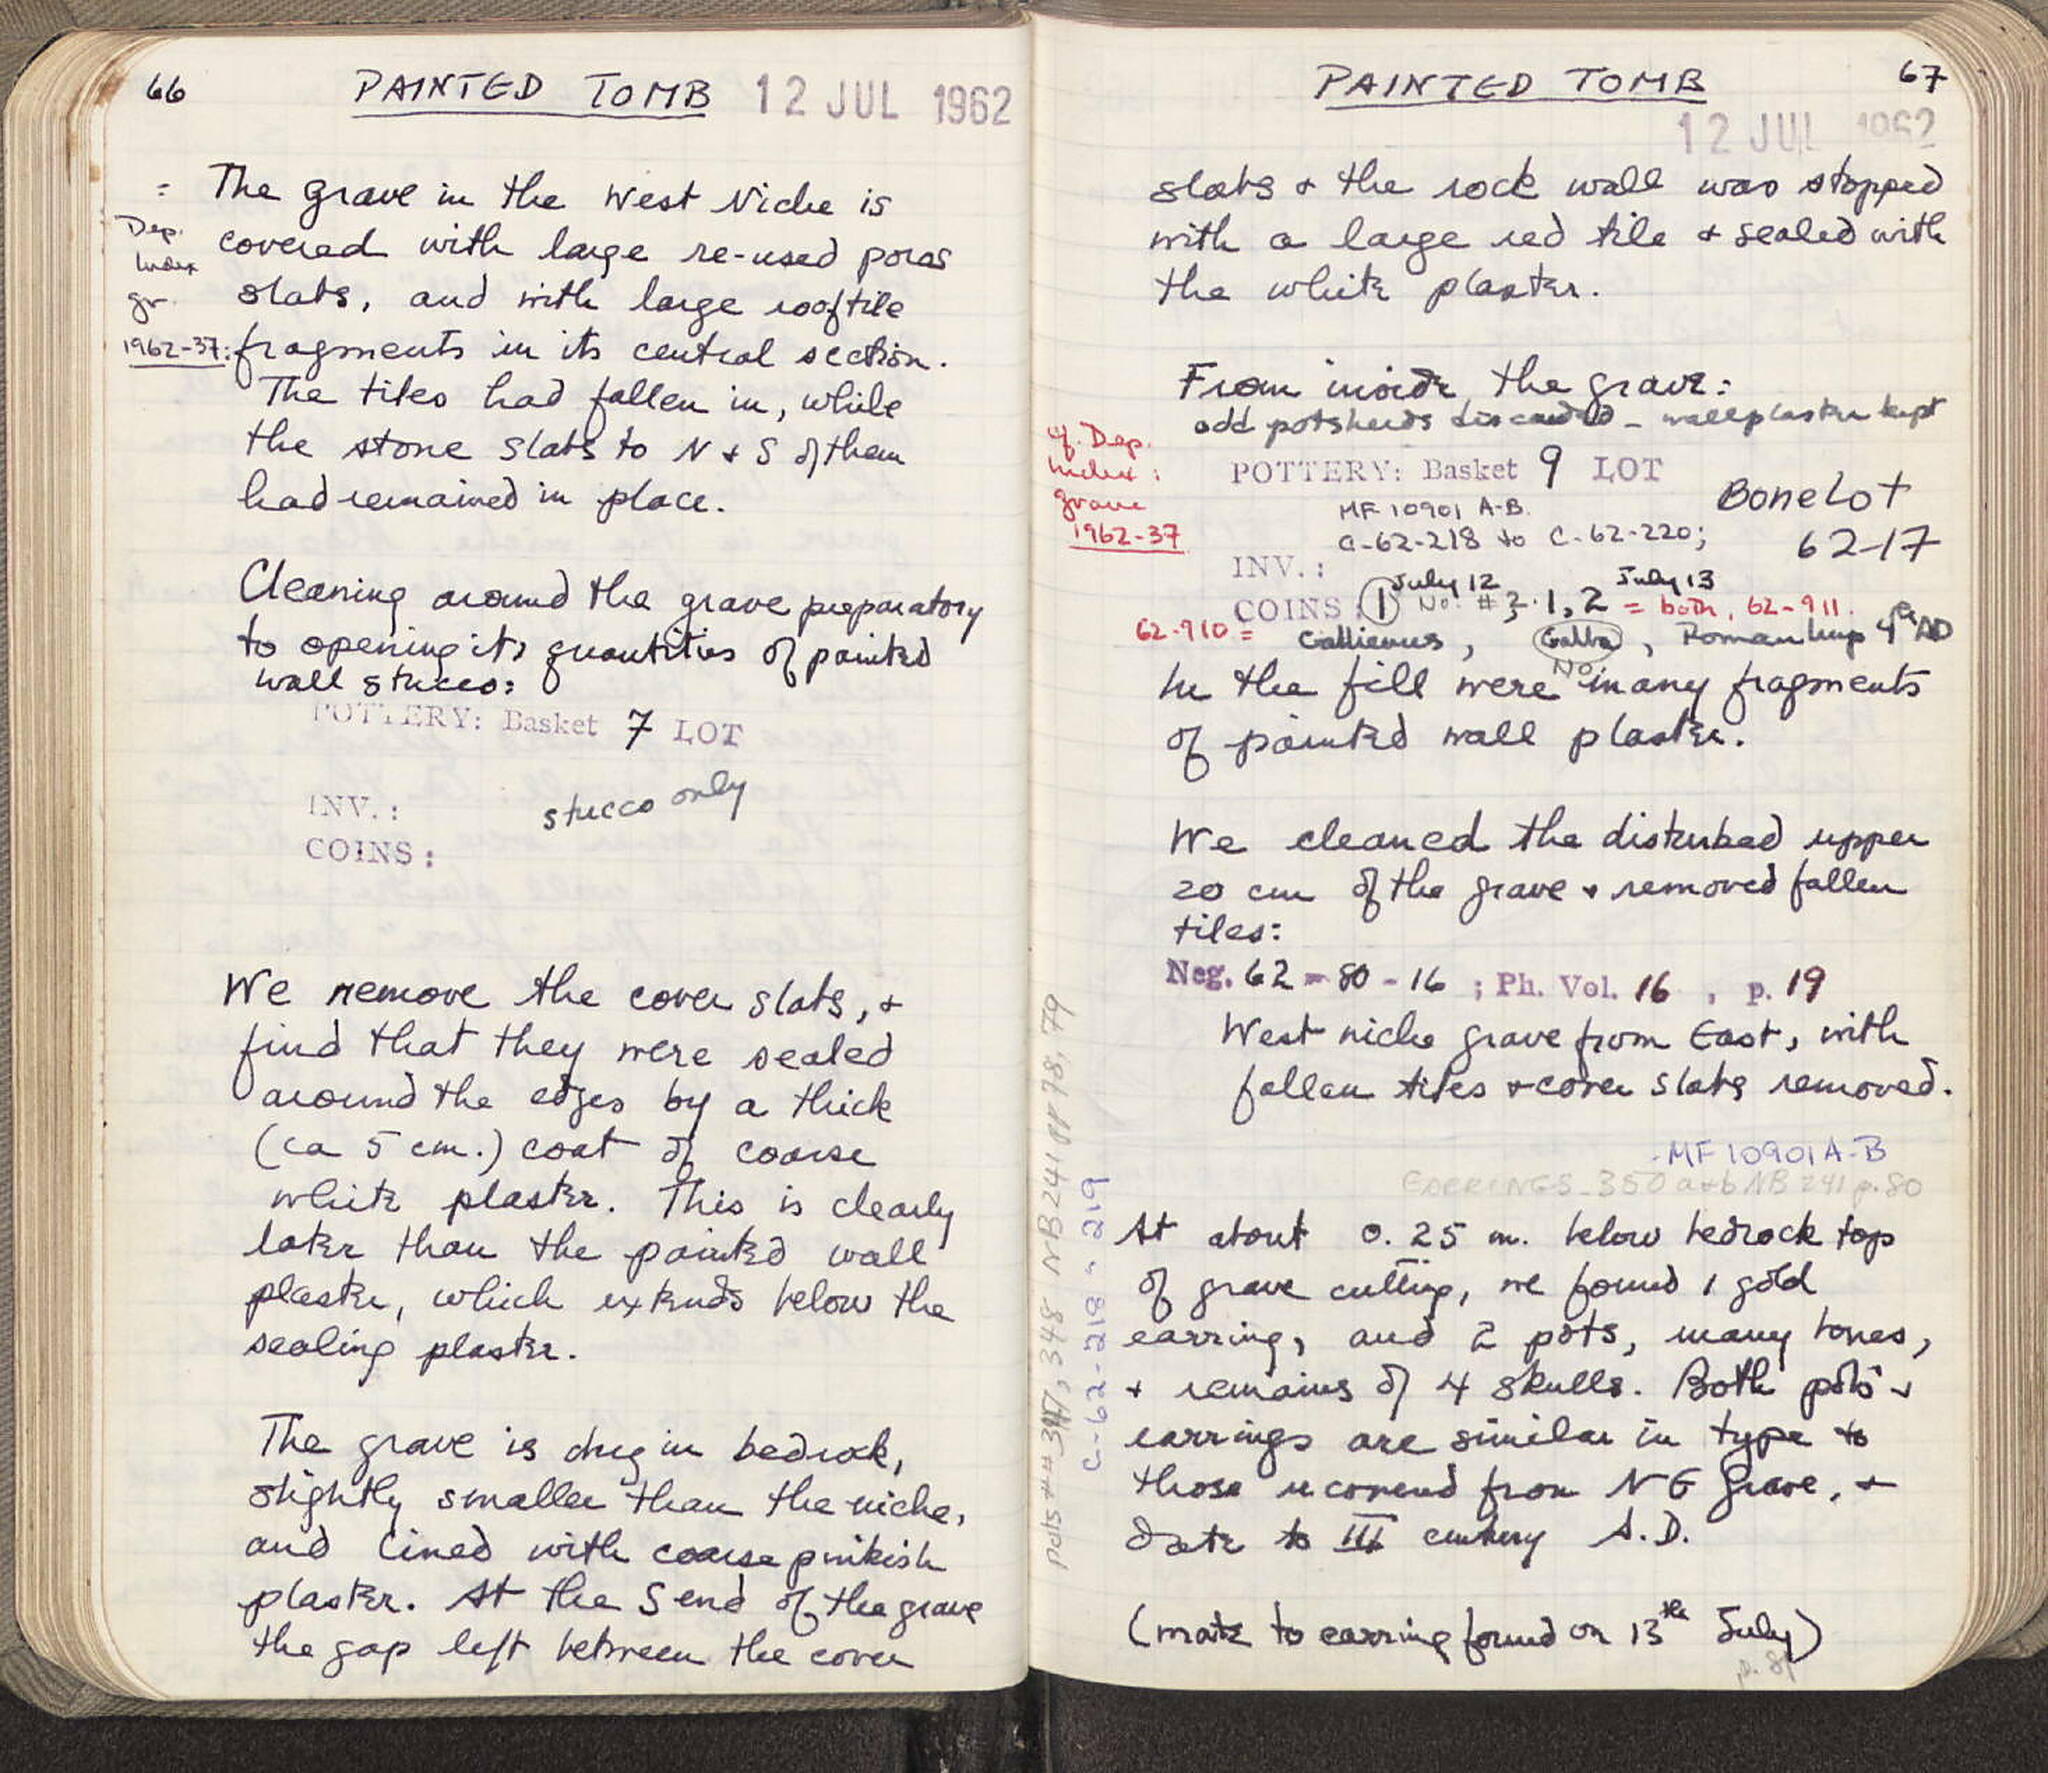 66 PAINTED TOMB 12 JUL 1962
= The grave in the West Niche is
Dep. Index gr. 1962-37:
covered with large re-used poros
slabs, and with large rooftile
fragments in its central section.
The tiles had fallen in, while
the stone slabs to N & S of them
had remained in place.
Cleaning around the grave preparatory
to opening it, quantities of painted
wall stucco:
POTTERY: Basket 7 LOT
INV.: stucco only
COINS:
We remove the cover slabs, &
find that they were sealed
around the edges by a thick
(ca 5 cm.) coat of coarse
white plaster. This is clearly
later than the painted wall
plaster, which extends below the
sealing plaster.
The grave is dug in bedrock,
slightly smaller than the niche,
and lined with coarse pinkish
plaster. At the S end of the grave
the gap left between the cover
PAINTED TOMB 67
12 JUL 1962
slabs & the rock wall was stopped
with a large red tile & sealed with
the white plaster.
From inside the grave:
odd potsherds discarded - wallplaster kept
cf. Dep.
Index:
grave
1962-37
POTTERY: Basket 9 LOT
Bone Lot
62-17
MF 10901 A-B.
C-62-218 to C-62-220;
INV.:
July 12 July 13
COINS: 1 No. # 1, 2 = both, 62-911.
62-910 = Gallienus, Galba, Roman Imp 4th AD
No
In the fill were many fragments
of painted wall plaster.
We cleaned the disturbed upper
20 cm of the grave & removed fallen
tiles:
Neg. 62-80-16 ; Ph. Vol. 16 , p. 19
West niche grave from East, with
fallen tiles & cover slabs removed.
MF 10901 A-B
EARRINGS - 350 a+b NB 241 p. 80
At about 0.25 m. below bedrock top
of grave cutting, we found 1 gold
earring, and 2 pots, many bones,
& remains of 4 skulls. Both pots &
earrings are similar in type to
those recovered from NE Grave, &
date to III century A.D.
(mate to earring found on 13th July)
pots ## 347, 348 NB 241 pp 78, 79
C-62-218-219